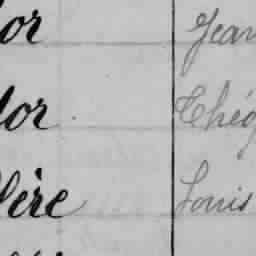 or Jean
dor Théo
lère Louis